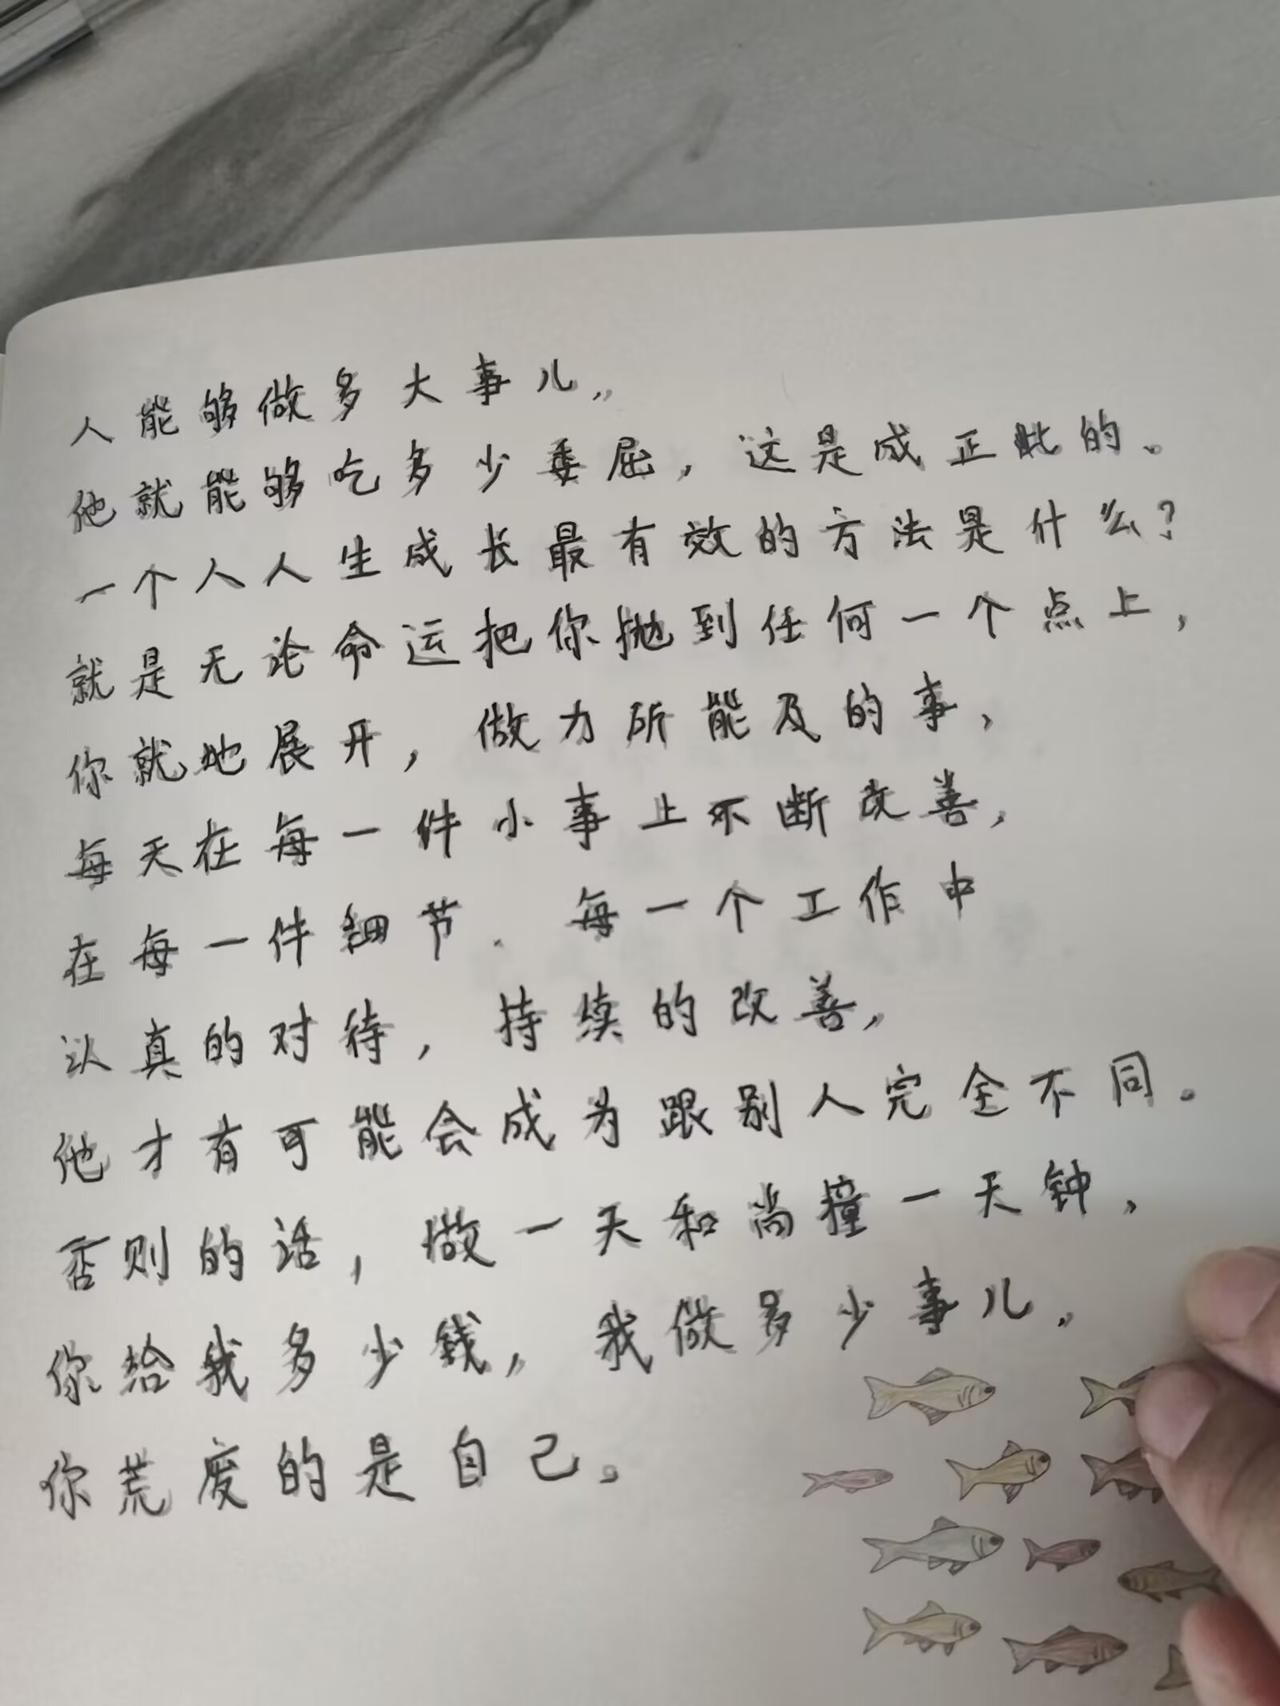 人能够做多大事儿。
他就能够吃多少委屈，这是成正比的。
一个人人生成长最有效的方法是什么？
就是无论命运把你抛到任何一个点上，
你就地展开，做力所能及的事，
每天在每一件小事上不断改善，
在每一件细节、每一个工作中
认真的对待，持续的改善，
他才有可能会成为跟别人完全不同。
否则的话，做一天和尚撞一天钟，
你给我多少钱，我做多少事儿。
你荒废的是自己。